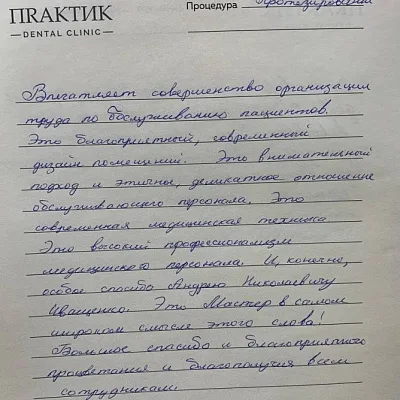 ПRАКТИК
— DENTAL CLINIC —
Процедура Протезирование
Впечатляет совершенство организации
труда по обслуживанию пациентов.
Это благоприятный, современный
дизайн помещений. Это внимательный
подход и этичное, деликатное отношение
обслуживающего персонала. Это
современная медицинская техника
Это высокий профессионализм
медицинского персонала. И, конечно,
особое спасибо Андрею Николаевичу
Иващенко. Это Мастер в самом
широком смысле этого слова!
Большое спасибо и благоприятного
процветания и благополучия всем
сотрудникам.